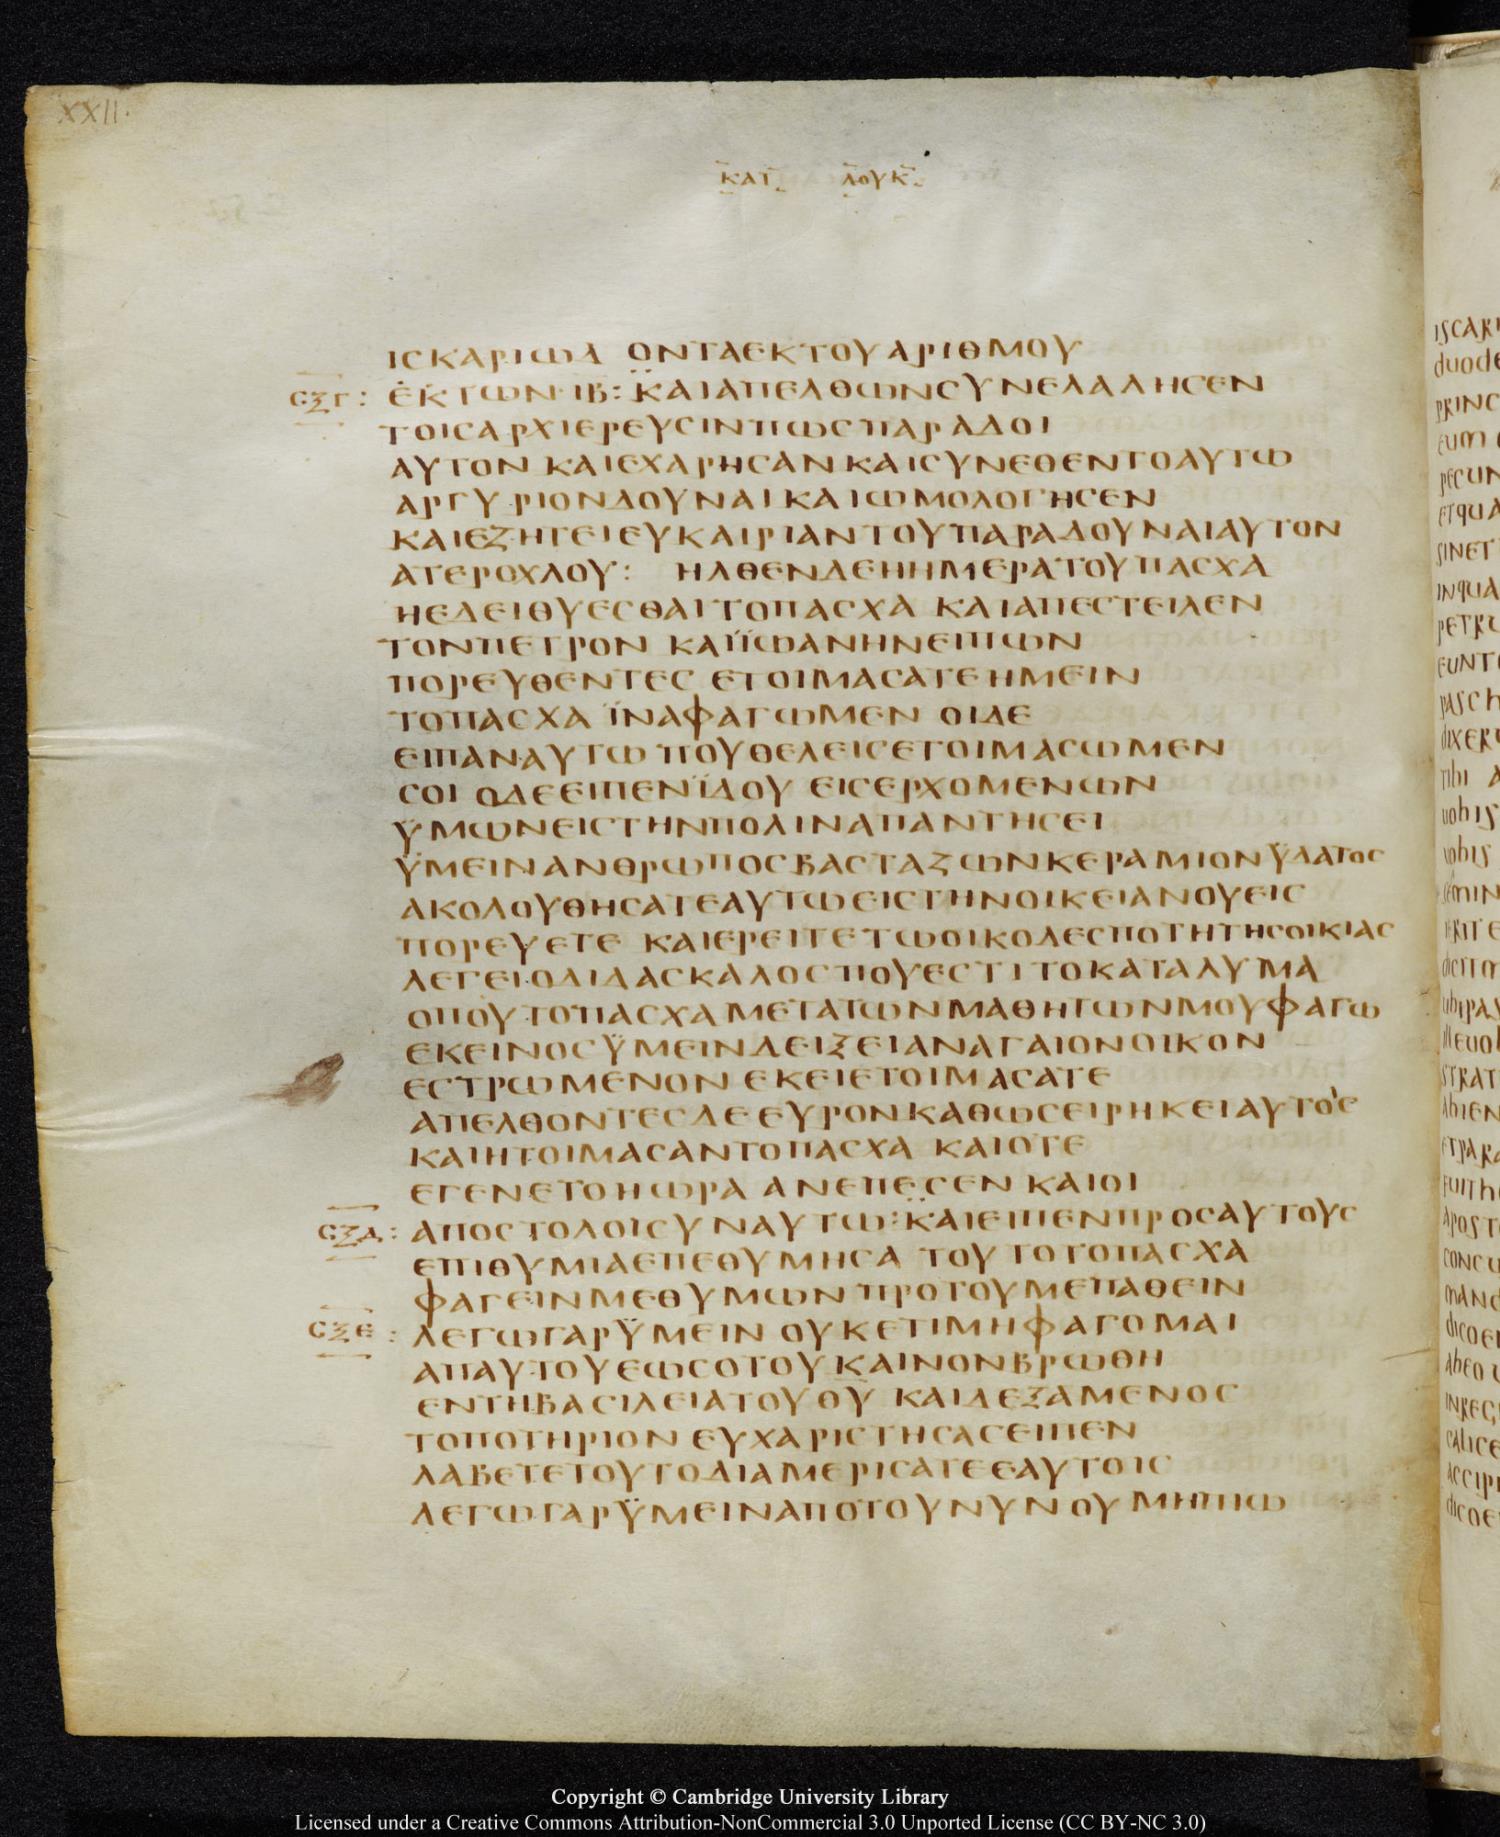 XXII.
ΚΑΤ ΛΟΥΚ
ΙΣΚΑΡΙΩΔ ΟΝΤΑΕΚΤΟΥΑΡΙΘΜΟΥ
ϹΞΓ: ΕΚΤΩΝ ΙΒ: ΚΑΙΑΠΕΛΘΩΝϹΥΝΕΛΑΛΗϹΕΝ
ΤΟΙϹΑΡΧΙΕΡΕΥϹΙΝΠΩϹΠΑΡΑΔΟΙ
ΑΥΤΟΝ ΚΑΙΕΧΑΡΗϹΑΝΚΑΙϹΥΝΕΘΕΝΤΟΑΥΤΩ
ΑΡΓΥΡΙΟΝΔΟΥΝΑΙΚΑΙΩΜΟΛΟΓΗϹΕΝ
ΚΑΙΕΖΗΤΕΙΕΥΚΑΙΡΙΑΝΤΟΥΠΑΡΑΔΟΥΝΑΙΑΥΤΟΝ
ΑΤΕΡΟΧΛΟΥ: ΗΛΘΕΝΔΕΗΗΜΕΡΑΤΟΥΠΑϹΧΑ
ΗΕΔΕΙΘΥΕϹΘΑΙΤΟΠΑϹΧΑ ΚΑΙΑΠΕϹΤΕΙΛΕΝ
ΤΟΝΠΕΤΡΟΝ ΚΑΙΪΩΑΝΗΝΕΙΠΩΝ
ΠΟΡΕΥΘΕΝΤΕϹ ΕΤΟΙΜΑϹΑΤΕΗΜΕΙΝ
ΤΟΠΑϹΧΑ ΪΝΑΦΑΓΩΜΕΝ ΟΙΔΕ
ΕΙΠΑΝΑΥΤΩ ΠΟΥΘΕΛΕΙϹΕΤΟΙΜΑϹΩΜΕΝ
ϹΟΙ ΟΔΕΕΙΠΕΝΪΔΟΥ ΕΙϹΕΡΧΟΜΕΝΩΝ
ΫΜΩΝΕΙϹΤΗΝΠΟΛΙΝΑΠΑΝΤΗϹΕΙ
ΫΜΕΙΝΑΝΘΡΩΠΟϹΒΑϹΤΑΖΩΝΚΕΡΑΜΙΟΝΫΔΑΤΟϹ
ΑΚΟΛΟΥΘΗϹΑΤΕΑΥΤΩΕΙϹΤΗΝΟΙΚΕΙΑΝΟΥΕΙϹ
ΠΟΡΕΥΕΤΕ ΚΑΙΕΡΕΙΤΕΤΩΟΙΚΟΔΕϹΠΟΤΗΤΗϹΟΙΚΙΑϹ
ΛΕΓΕΙΟΔΙΔΑϹΚΑΛΟϹΠΟΥΕϹΤΙΤΟΚΑΤΑΛΥΜΑ
ΟΠΟΥΤΟΠΑϹΧΑΜΕΤΑΤΩΝΜΑΘΗΤΩΝΜΟΥΦΑΓΩ
ΕΚΕΙΝΟϹΫΜΕΙΝΔΕΙΞΕΙΑΝΑΓΑΙΟΝΟΙΚΟΝ
ΕϹΤΡΩΜΕΝΟΝ ΕΚΕΙΕΤΟΙΜΑϹΑΤΕ
ΑΠΕΛΘΟΝΤΕϹΔΕΕΥΡΟΝΚΑΘΩϹΕΙΡΗΚΕΙΑΥΤΟΙϹ
ΚΑΙΗΤΟΙΜΑϹΑΝΤΟΠΑϹΧΑ ΚΑΙΟΤΕ
ΕΓΕΝΕΤΟΗΩΡΑ ΑΝΕΠΕϹΕΝ ΚΑΙΟΙ
ϹΞΔ: ΑΠΟϹΤΟΛΟΙϹΥΝΑΥΤΩ:ΚΑΙΕΙΠΕΝΠΡΟϹΑΥΤΟΥϹ
ΕΠΙΘΥΜΙΑΕΠΕΘΥΜΗϹΑ ΤΟΥΤΟΤΟΠΑϹΧΑ
ΦΑΓΕΙΝΜΕΘΥΜΩΝ ΠΡΟΤΟΥΜΕΠΑΘΕΙΝ
ϹΞΕ: ΛΕΓΩΓΑΡΫΜΕΙΝ ΟΥΚΕΤΙΜΗΦΑΓΟΜΑΙ
ΑΠΑΥΤΟΥΕΩϹΟΤΟΥΚΑΙΝΟΝΒΡΩΘΗ
ΕΝΤΗΒΑϹΙΛΕΙΑΤΟΥΘΥ ΚΑΙΔΕΞΑΜΕΝΟϹ
ΤΟΠΟΤΗΡΙΟΝ ΕΥΧΑΡΙϹΤΗϹΑϹΕΙΠΕΝ
ΛΑΒΕΤΕΤΟΥΤΟΔΙΑΜΕΡΙϹΑΤΕΕΑΥΤΟΙϹ
ΛΕΓΩΓΑΡΫΜΕΙΝΑΠΟΤΟΥΝΥΝ ΟΥ ΜΗΠΙΩ
Copyright © Cambridge University Library
Licensed under a Creative Commons Attribution-NonCommercial 3.0 Unported License (CC BY-NC 3.0)